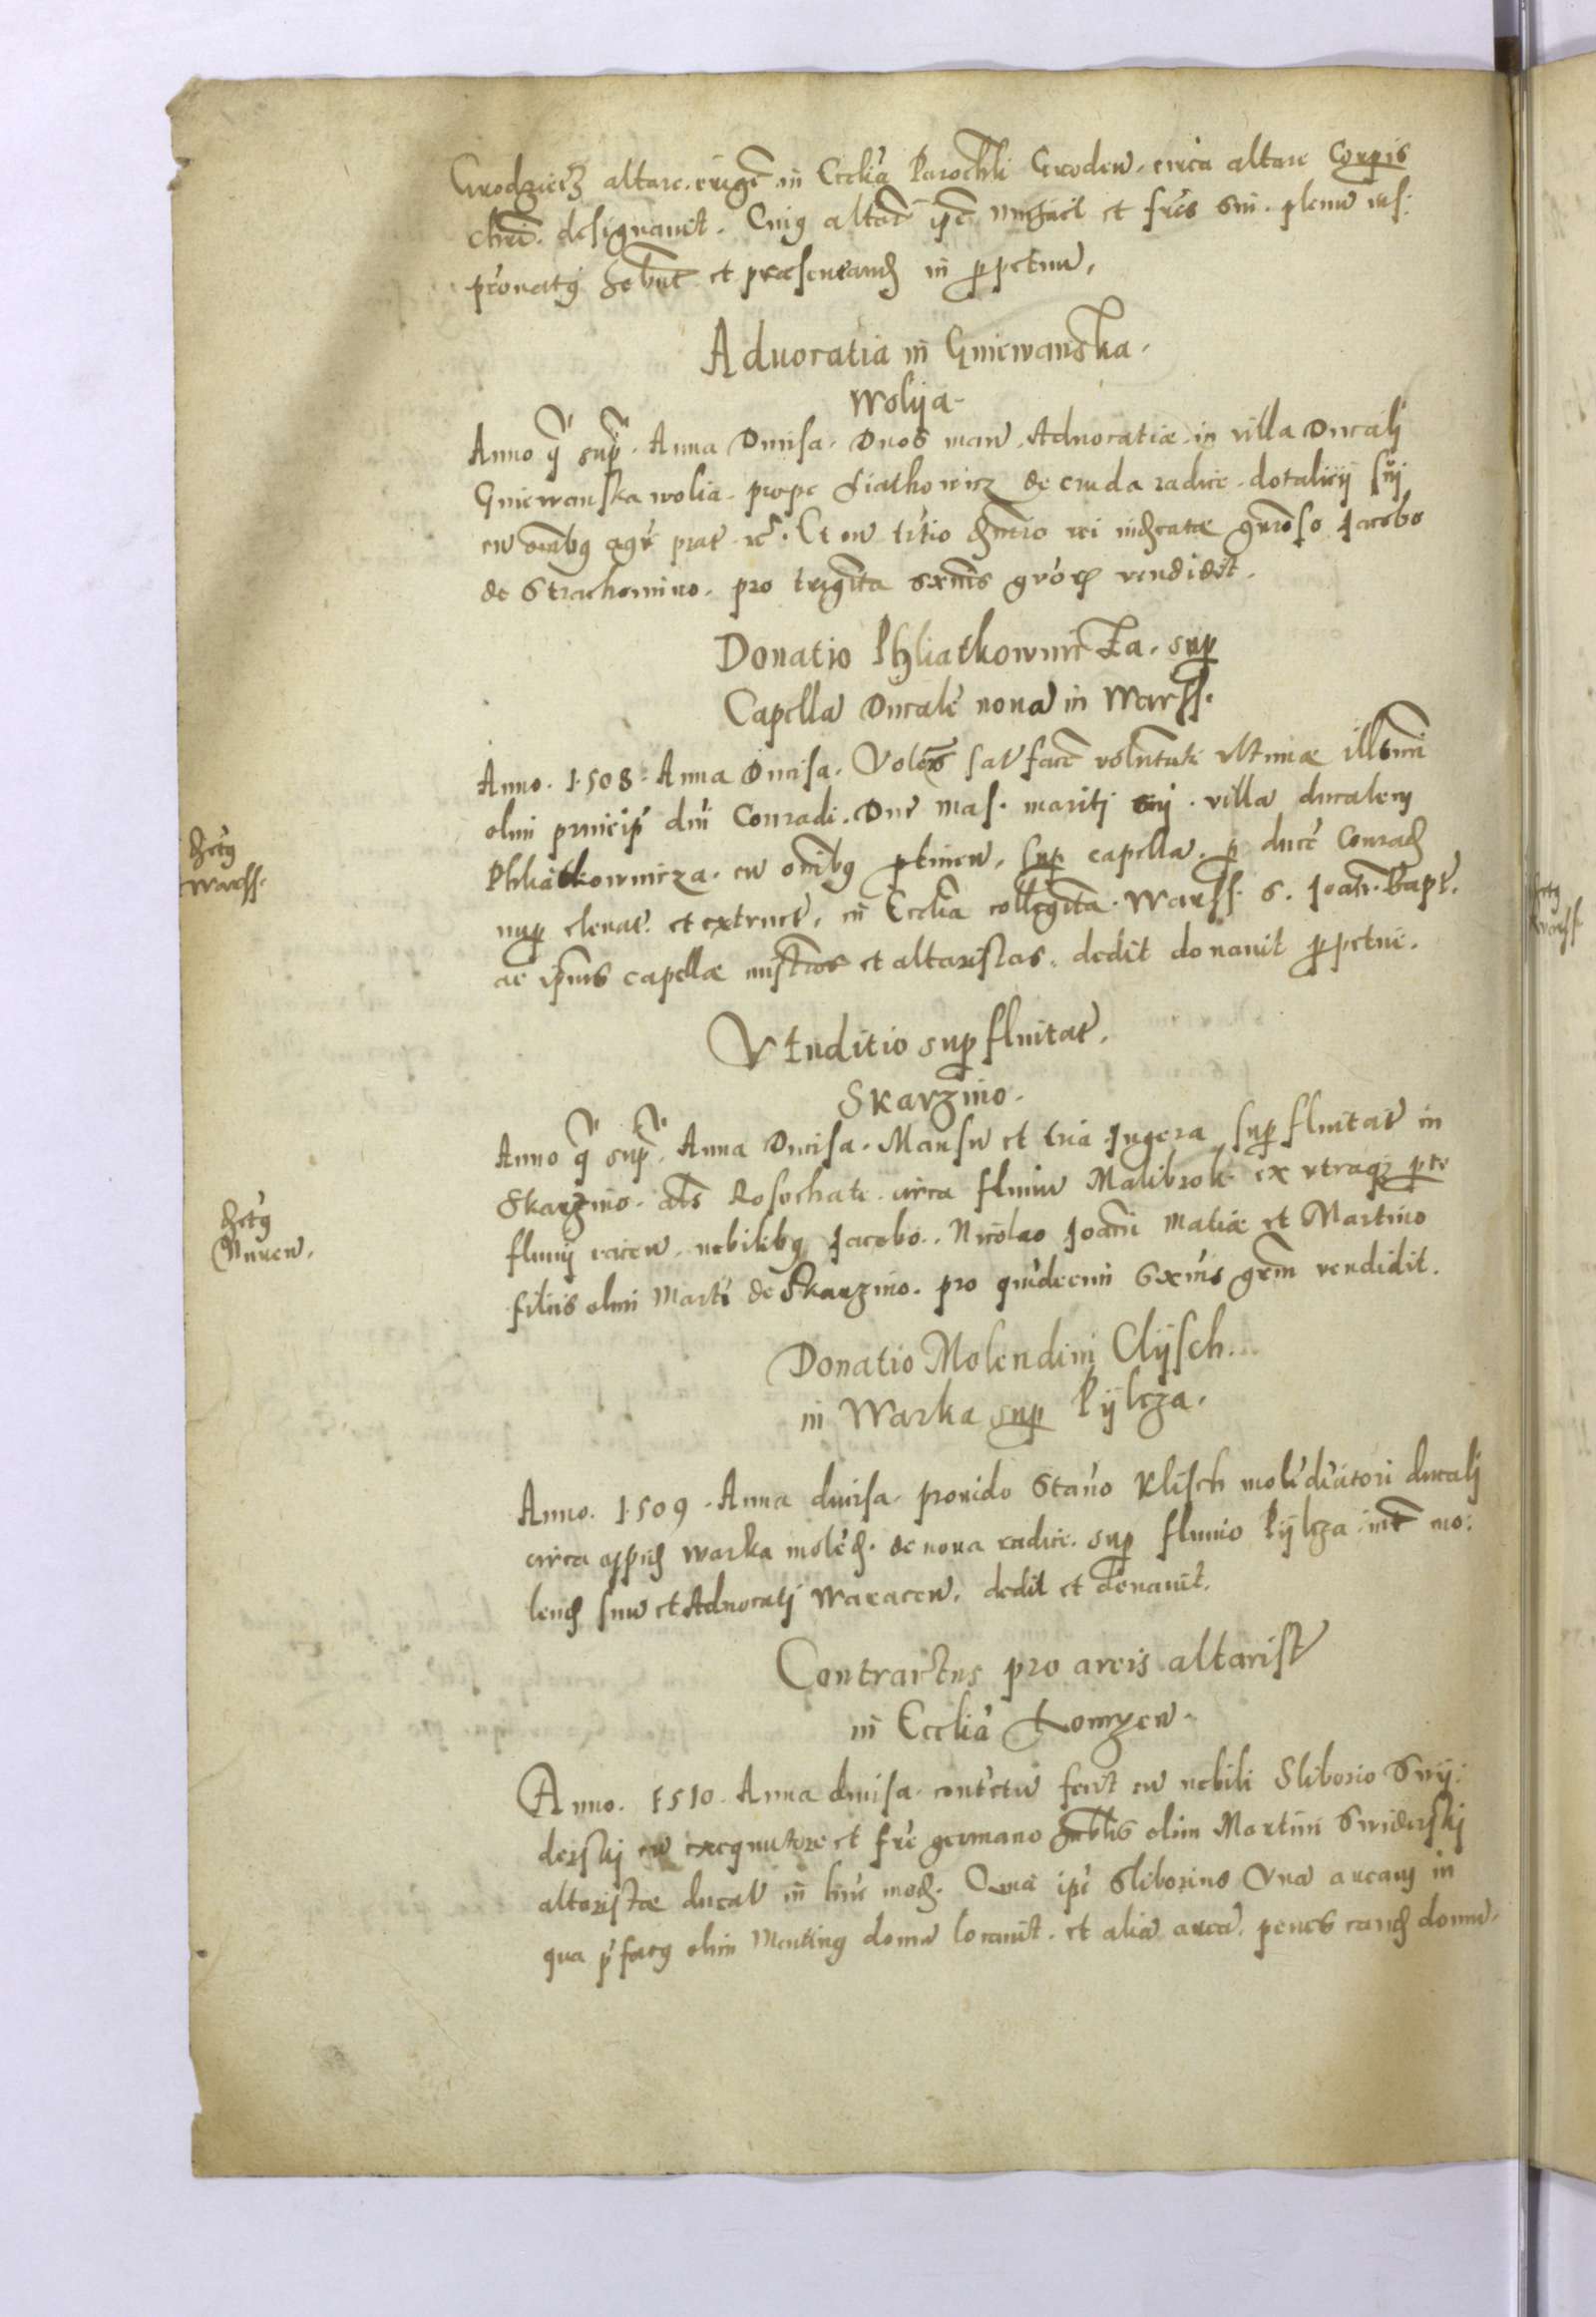 Grodziecz altare. erige in Ecclia Parochli Groden. circa altare Corpis
Christi. designavit. Cuig altar ipe Michael et fres sui. plenu ius:
pronatg hebunt et præsentand in ppetuu,
Aduocatia in Gniewanska.
wolya.
Anno q supr. Anna Ducisa. Duos man. Aduocatiæ in villa Ducalj
Gniewanska wolia. prope Liathowicz de cruda radice. dotalicij suj
cu omibg agr prat rc. Et cu trtio denario rei iudicatæ genroso Jacobo
de Strachomino. pro trigita sxnis groch vendidit.
Donatio Phliatkownicza. sup
Capella Ducale noua in Warss.
Anno. 1.508. Anna Ducisa. Volens satface volutati vltimæ illsmi
olim principi dni Conradi. Duc mas. maritj suj. villa ducalem
Phliatkownicza. cu omibg ptinen. sup capella. p duce Conrad
nup eleuat. et extruct. in Ecclia collegita. Warss. S. Joan. Bapt.
ac ipius capellæ mistros et altaristas. dedit donauit ppetue.
Venditio supfluitat.
Skarzino.
Anno q supr. Anna Ducisa. Mansu et tria Jugera supfluitat in
Skarzino. als Rosochate. circa fluuiu Malibrok ex vtraq pte
fluuij iacen. nobilibg Jacobo. Nicolao Joani Matiæ et Martino
filiis olim Marti de Skarzino. pro quidecim Sxnis grm vendidit.
Donatio Molendini Clysch.
in Warka sup Pylcza.
Anno. 1.509. Anna ducisa. prouido Stano Klisch molediatori ducalj
circa oppid warka moled. de noua radice. sup fluuio Pylcza int mo:
lend suu et Aduocatj Waracen. dedit et donauit.
Contractus pro areis altarist
in Ecclia Lomzen.
Anno. 1510. Anna ducisa. contctu fecit cu nobili Sliborio Swy:
derskj cu exequutore et fre germano olim Martini Swiderskj
altaristæ ducal in huc mod. Quia ipe Sliborius Vna aream in
qua pfatg olim Marting domu locauit. et alia area. penes eand domu.
Warss.
Nuren.